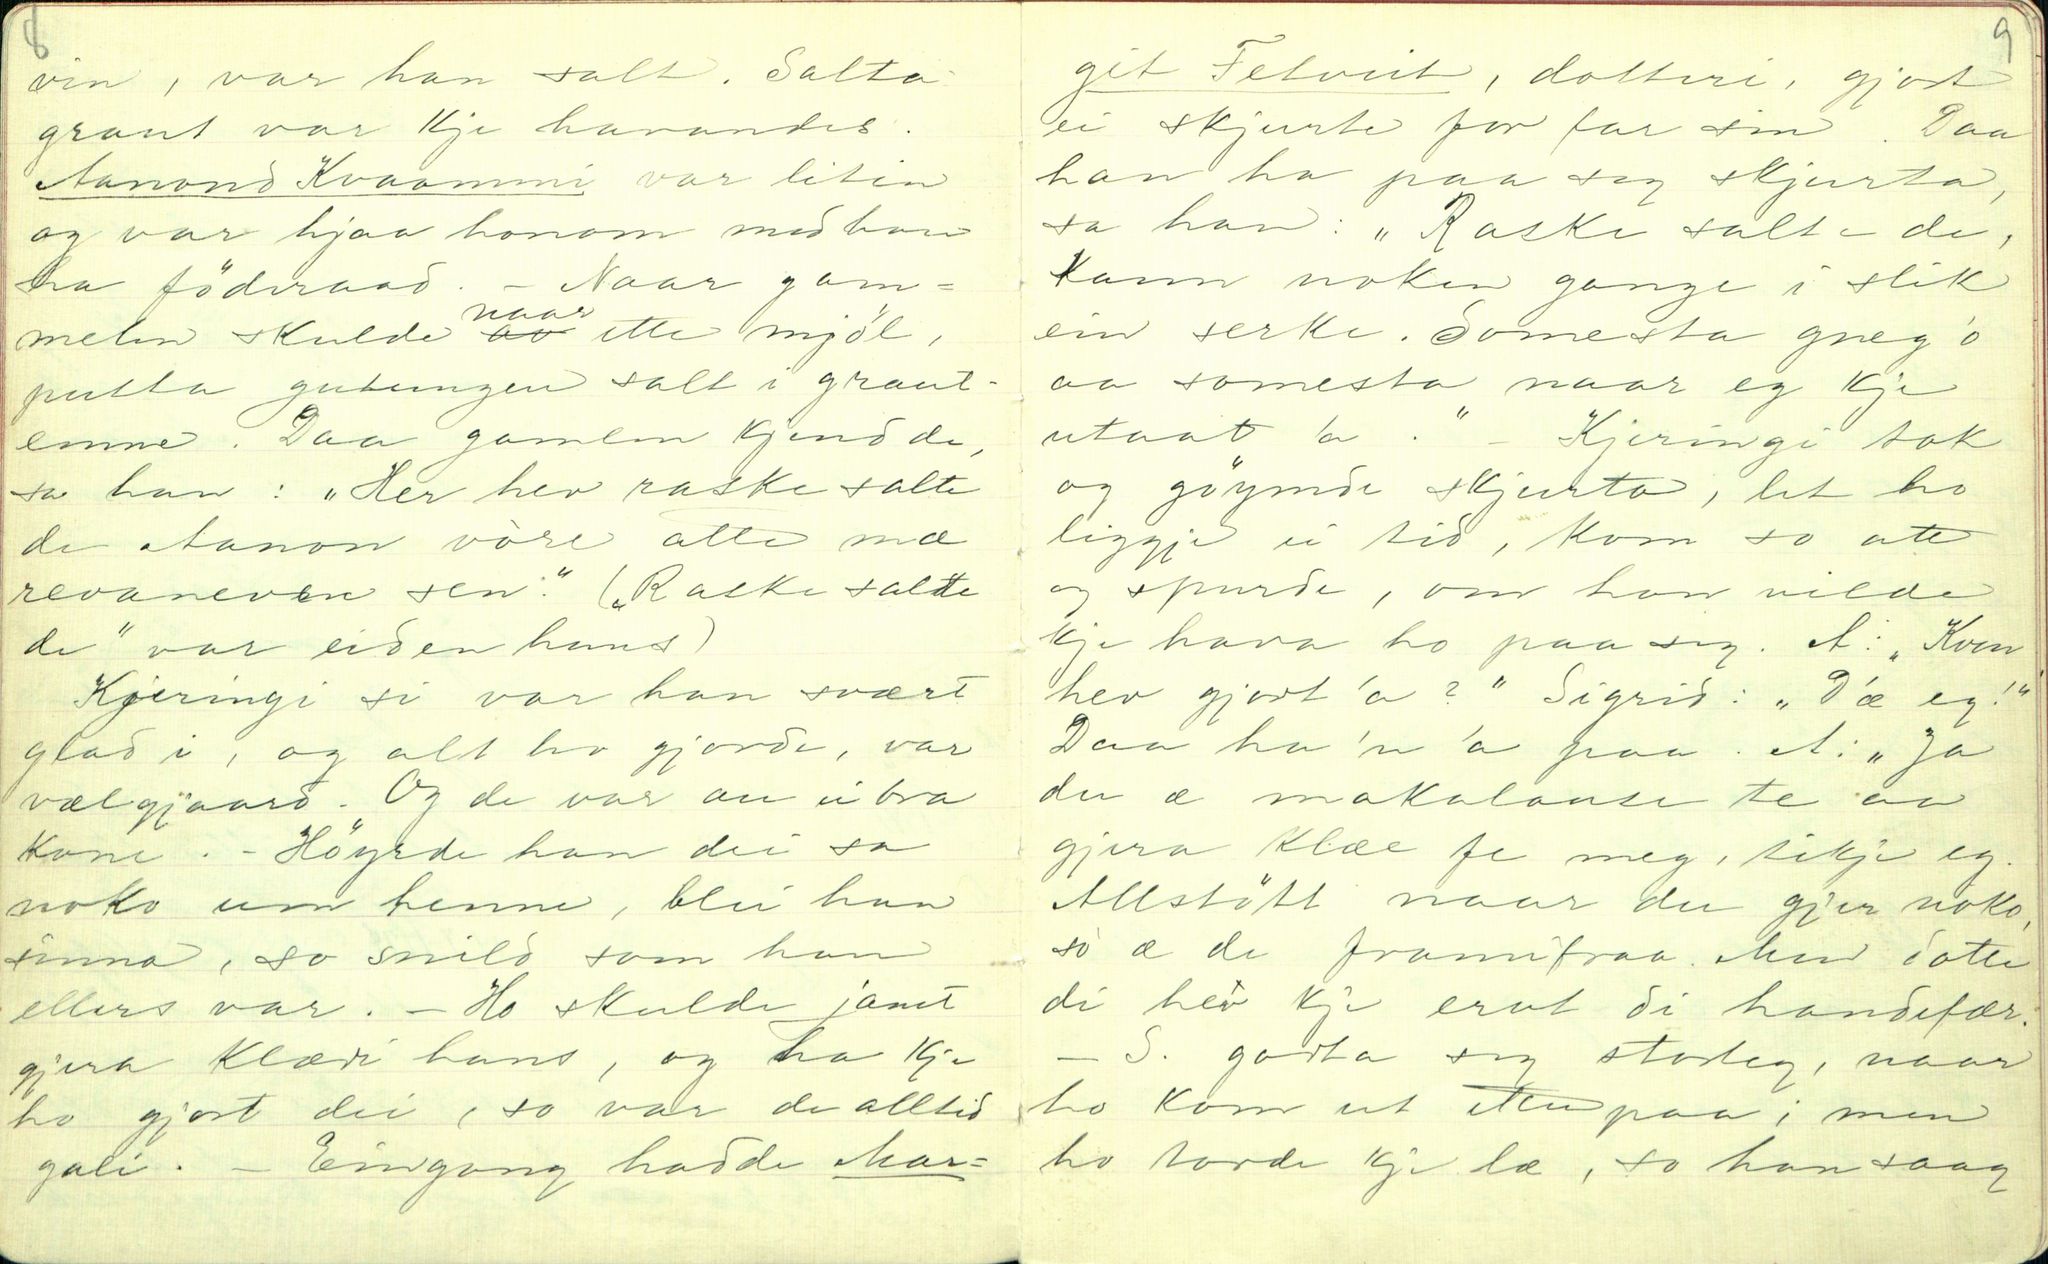 8
vin, var han salt. Salta
graut var kje havandes.
Aanond Kvaammi var liten
og var hjaa honom med han
ha föderaad. – Naar gam=
melen skulde naar av ette mjöl,
putta gutungen salt i graut-
emne. Daa gamlen kjende de,
sa han: „Her hev raske salte
de Aanon vòre atte mæ
revaneven sen." („Raske salte
de" var eiden hans)
Kjeringi si var han svært
glad i, og alt ho gjorde, var
vælgjaard. Og de var au ei bra
kone. – Höyrde han dei sa
noko um henne, blei han
sinna, so snild som han
ellers var. – Ho skulde jamt
gjera klædi hans, og ha kje
ho gjort dei, so var de alltid
gali. – Eingong hadde Mar=
9
git Fetveit, dotteri, gjort
ei skjurte for far sin. Daa
han ha paa seg skjurta,
sa han: „Raske salt – de,
kann noken gange i slik
ein serke. Somesta gneg'o
aa somesta naar eg kje
utaat 'a." – Kjeringi tok
og göymde skjurta, let ho
liggje ei tid, kom so att
og spurde, om han vilde
kje hava ho paa seg. A: „Kven
hev gjort 'a?" Sigrid: „D'æ eg!"
Daa ha 'n 'a paa. A: „Ja
du æ makalause te aa
gjera klæe fe meg, tikje eg.
Allstött naar du gjer noko,
so æ de framifraa. Men dotte
di hev kje ervt di handefær.
– S. godta seg storleg, naar
ho kom ut ettepaa; men
ho torde kje læ, so han saag